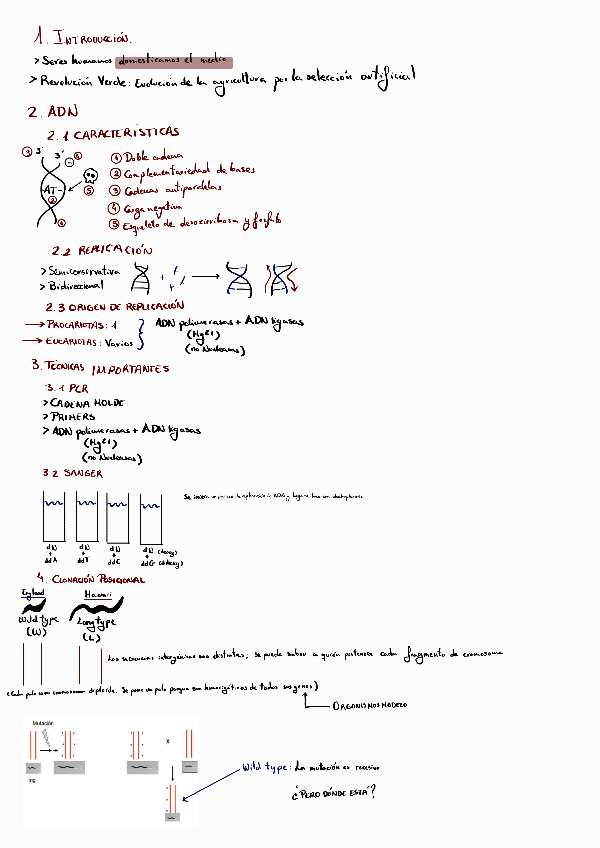 1. INTRODUCCIÓN.
> Seres humanos domesticamos el medio
> Revolución Verde: Evolución de la agricultura por la selección artificial
2. ADN
2.1 CARACTERÍSTICAS
3 5' 3' - 4
① Doble cadena
② Complementariedad de bases
AT 2 5
③ Cadenas antiparalelas
④ Carga negativa
⑤ Esqueleto de desoxirribosa y fosfato
2.2 REPLICACIÓN
> Semiconservativa
> Bidireccional
2.3 ORIGEN DE REPLICACIÓN
→ PROCARIOTAS: 1
→ EUCARIOTAS: Varios
ADN polimerasas + ADN ligasas
(Mg2+)
(no Nucleasas)
3. TÉCNICAS IMPORTANTES
3.1 PCR
> CADENA MOLDE
> PRIMERS
> ADN polimerasas + ADN ligasas
(Mg2+)
(no Nucleasas)
3.2 SANGER
Se un proceso de replicación de ADN y
dN + ddA
dN + ddT
dN + ddC
dN (deoxy) + ddG (dideoxy)
4. CLONACIÓN POSICIONAL
England
Wild type
(W)
Hawaii
Long type
(L)
Las secuencias intergénicas son distintas; Se puede saber a quién pertenece cada fragmento de cromosoma
(Cada palo es un cromosoma diploide. Se pone un palo porque son homocigóticos de todos sus genes)
ORGANISMOS MODELO
Mutación
x
Ing
Wild type: La mutación es recesiva
¿PERO DÓNDE ESTÁ?